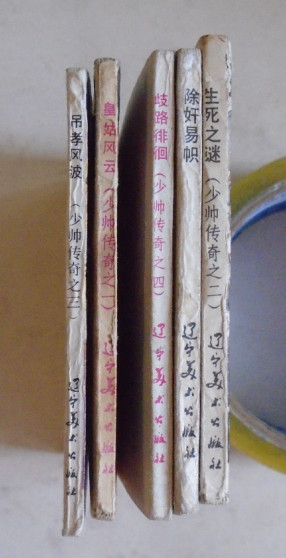 吊孝风波(少帅传奇之三)
辽宁美术出版社
皇姑风云(少帅传奇之一)
辽宁美术出版社
歧路徘徊(少帅传奇之四)
辽宁美术出版社
除奸易帜
辽宁美术出版社
生死之谜(少帅传奇之二)
辽宁美术出版社